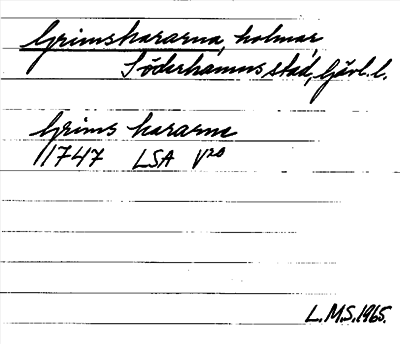 Grimshararna, holmar,
Söderhamns stad, Gävl. l.
Grims hararne
1747 LSA V20
L.M.S. 1965.